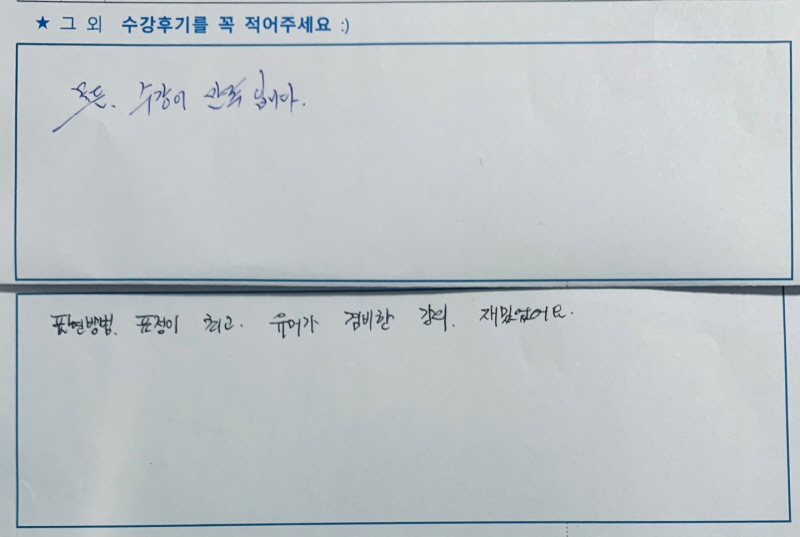 ★ 그 외 수강후기를 꼭 적어주세요 :)
모든. 수강이 만족 입니다.
표현방법. 표정이 최고. 유머가 겸비한 강의. 재밌었어요.